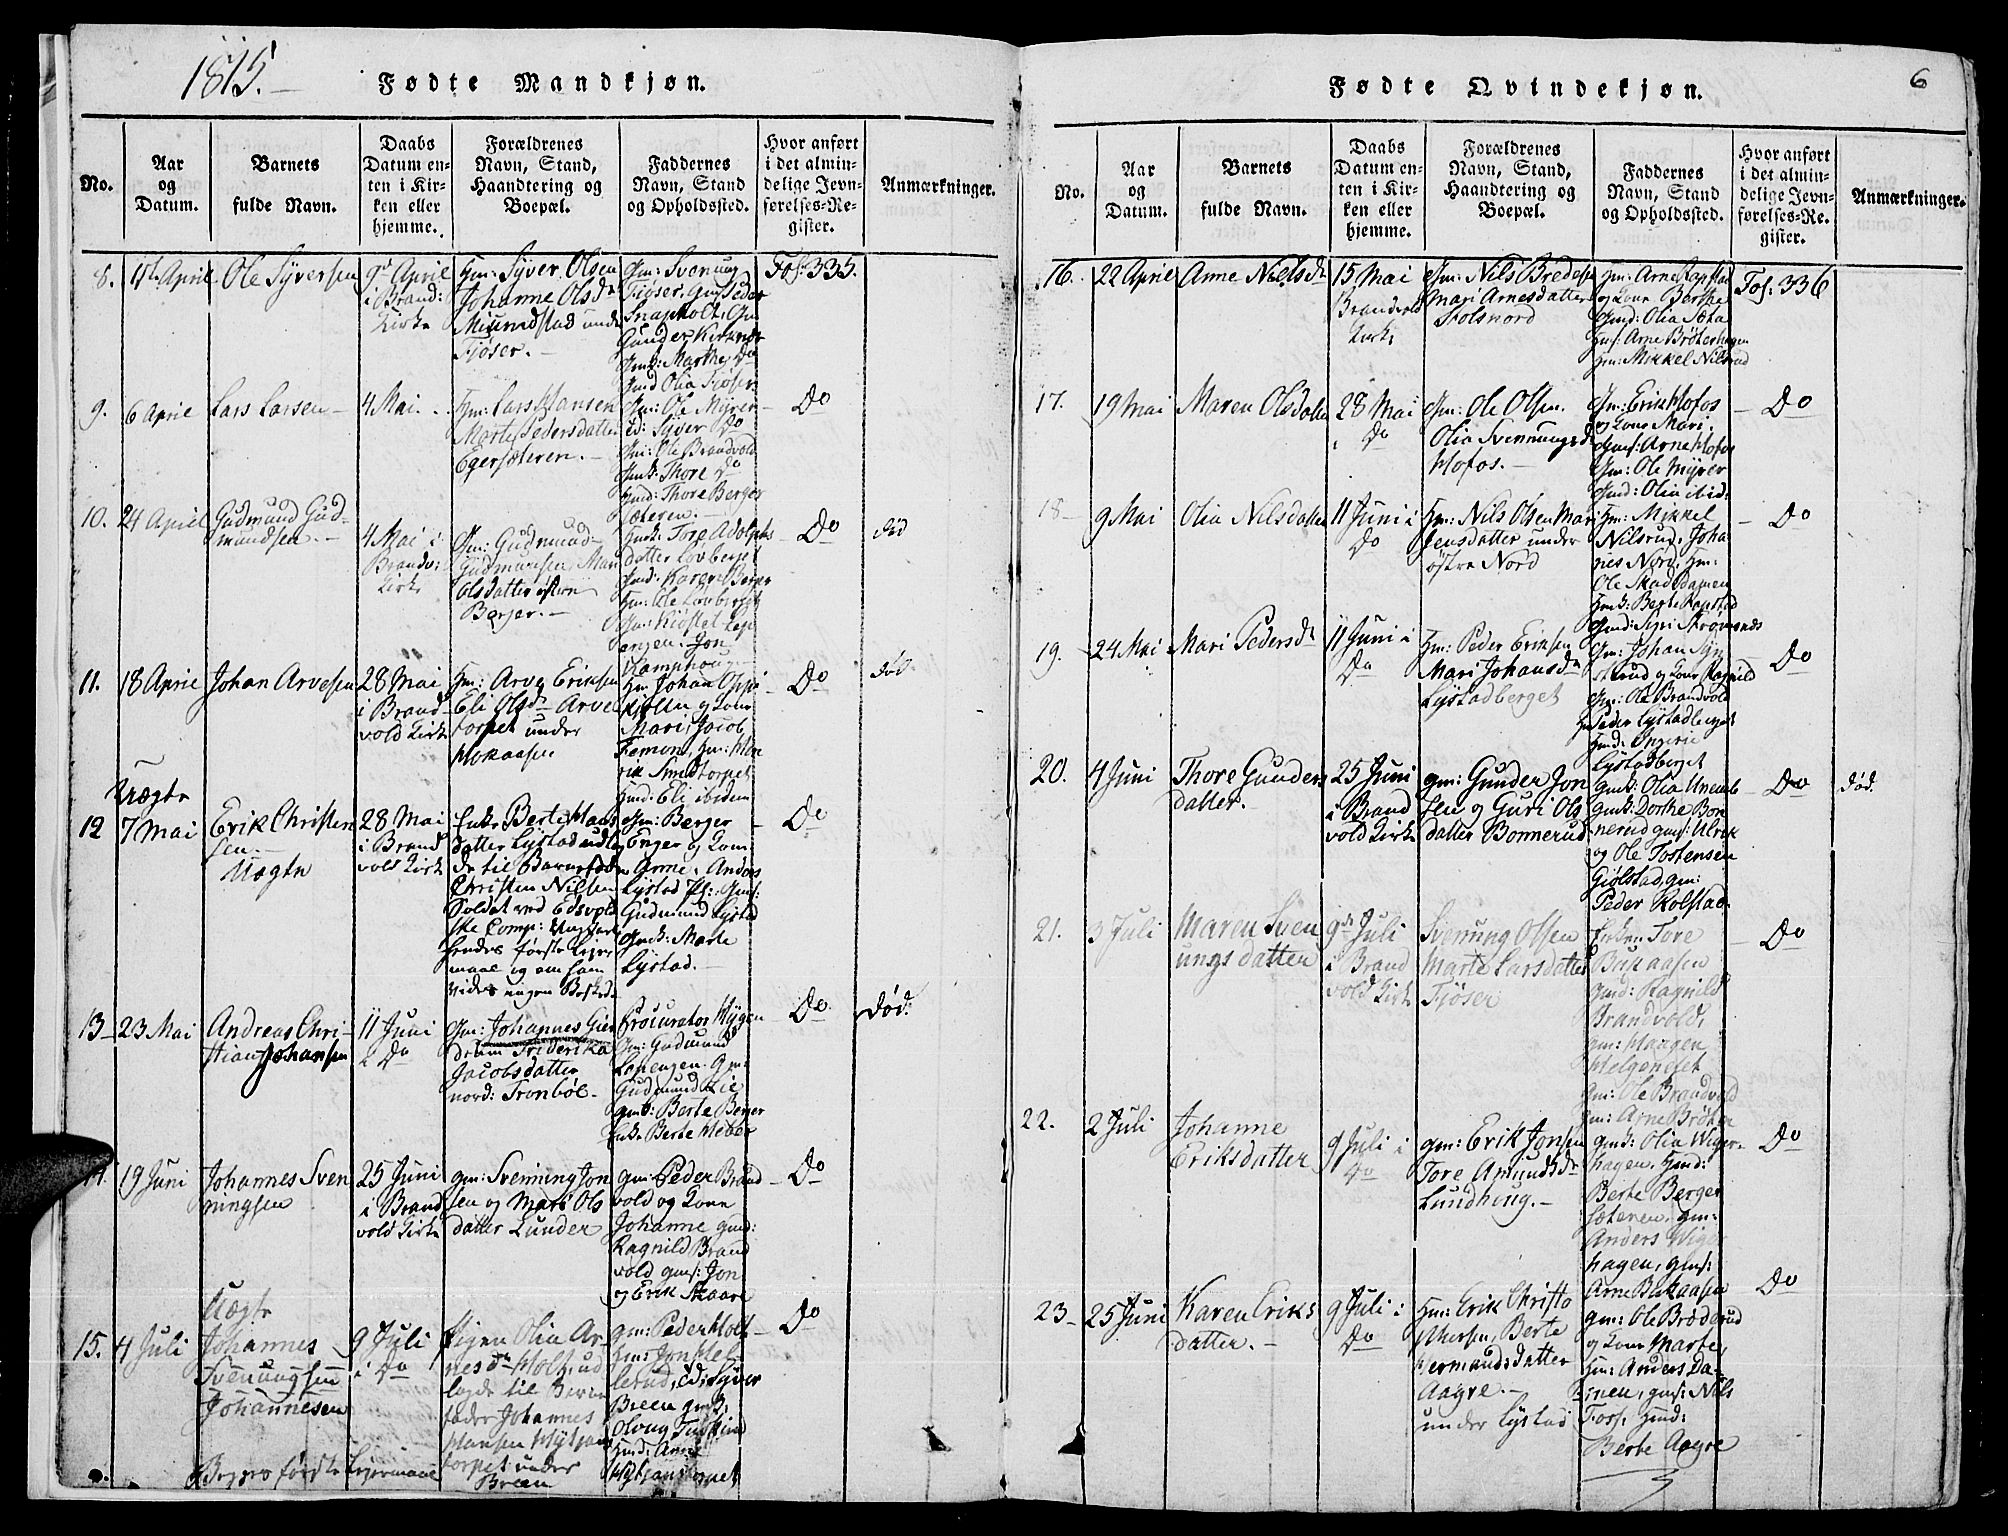 1815.
Fødte Mandkjøn.
No.
Aar og Datum.
Barnets fulde Navn.
Daabs Datum enten i Kirken eller hjemme.
Forældrenes Navn, Stand, Haandtering og Boepæl.
Faddernes Navn, Stand og Opholdssted.
Hvor anført i det almindelige Jevnførelses-Register.
Anmærkninger.
8.
4de April
Ole Syversen
9de April
i Brand:
Kirke
Hm: Syver Olsen
Johanne Olsdr
under
Fjöser.
Gm: Svenung
Fiöser. Gm: Peder
Gunder
Gmk: Marthe Do
Gmd Olia Fiöser
Fol: 335.
9.
6 April
Lars Larsen
4 Mai
Hm: Lars Hansen
Marte Pedersdatter
Egersæteren.
Gm: Ole Myrer
ed: Syver Do
Gm: Ole Brandvold
Gmk: Thore Do
Hmd: Thore Berger
sæteren.
Do
10.
24 April
Gudmund Gud-
mundsen.
4 Mai i
Brandv:
Kirke
Gm: Gudmund
Gudmunsen, Mari
Olsdatter
Berger.
Hmk: Tore Adolphs
datter Lövberget
Gmd: Karen Berger
Hm: Ole Lövberget
Jon
Do
död
11.
18 April
Johan Arvesen
28 Mai
i Brand-
vold Kirke
Hm: Arve Eriksen
Eli Olsdr Arve
torpet under
Mokaasen
Hm: Johan
og Kone
Mari, Jacob
Femoen, Hm: Hen
rik Smedtorpet
Hmd: Eli ibidem
Do
död
Uægte
12
7 Mai
Erik Christen
sen.
Uægte
28 Mai
i Brand
vold Kirke
Enke Berte Hans
datter Lystad udlag
de til Barnefader
Christen Nilsen
Soldat ved Edsvold
ske Comp:
hendes förste Leier
maal og om ham
vides ingen Beskd:
Gm: Berger
Enger og Kone
Anne, Anders
Lystad Pl:, Gmf:
Gudmund Lystad
Gmk: Marte
Lystad.
Do
13
23 Mai
Andreas Chri-
stian Johansen
11 Juni
i Do
Gm: Johannes Gier
drum Friderika
Jacobsdatter
nord: Tronböl.
Procurator Nygen
Gm: Gudmund
Gm:
Gudmund Lie
gmk: Berte Berger
Enke Berte
Do
Död.
14.
19 Juni
Johannes Sven
ningsen
25 Juni
i Brand
vold Kirke
gm: Svenning Jon
sen og Mari Ols
datter Lunder
gm: Peder Brand
vold og Kone
Johanne gmd:
Ragnild Brand
vold gmf: Jon
og Erik Skaare
Do
Uægte
15.
4 Juli
Johannes
Svenungsen
Johannesen
9 Juli
i Do
Pigen Olia Ar-
nesdr Holt, ud
lagde til Barne
fader Johannes
Hansen
torpet under
Breen
gm: Peder Holt
Hm: Jon Mel
lerud, ed: Syver
Breen gmk:
Olvug
Hmd: Anne
Do
Begges förste Leiermaal
6
Fødte Qvindekjøn.
No.
Aar og Datum.
Barnets fulde Navn.
Daabs Datum enten i Kirken eller hjemme.
Forældrenes Navn, Stand, Haandtering og Boepæl.
Faddernes Navn, Stand og Opholdssted.
Hvor anført i det almindelige Jevnførelses-Register.
Anmærkninger.
16.
22 April
Anne Nielsdr
15 Mai
Brandvold
Kirke
Gm: Nils Bredesen
Mari Arnesdatter
Stolsnord
Hm: Arne
og Kone Berthe
Gmd: Olia Sæta
Hmf: Arne Bröterhagen
Hm: Mikkel Nilsrud
Fol: 336
17.
19 Mai
Maren Olsdatter
28 Mai
i Do
Gm: Ole Olsen.
Olia Svennungsdr
Hofos.
Gm: Erik Hofos
og Kone Mari.
Gmf: Arne Hofos
Gm: Ole Myrer
Gmd: Olia ibid:
Do
18
9 Mai
Olia Nilsdatter
11 Juni i
Do
Hm: Nils Olsen Mari
Jensdatter under
östre Nord
Hm: Mikkel
Nilsrud, Joha-
nes Nord, Hm:
Ole Skaddamen
Hmk: Berte
Gmd: Siri
Do
19.
24 Mai
Mari Pedersdr
11 Juni i
Do
Hm: Peder Eriksen
Mari Johansdr
Lystadberget
Gm: Johan
og Kone Ragnild
Gm: Ole Brandvold
Hm Peder Lystadberget
Hmd: Ingerie
Lystadberget
Do
20.
4 Juni
Thore Gunders
datter.
25 Juni
i Brand
vold Kirke
gm: Gunder Jon
sen og Guri Ols
datter Bonnerud
gmk: Olia
gmk: Dorthe Bon
nerud gmf: Ulrik
og Ole Tostensen
Giölstad, gm:
Peder Kolstad.
Do
död.
21.
3 Juli
Maren Sven
ungsdatter
9de Juli
i Brand
vold Kirke
Svenung Olsen
Marte Larsdatter
Fjöser
Tore
Gmd: Ragnild
Brandvold,
gm: Haagen
gm: Ole Brandvold
gm: Arne Bröten
Do
22.
2 Juli
Johanne
Eriksdatter
9 Juli i
Do
gm: Erik Jonsen
Tore Amundsdr
Lundhaug.
gmk: Olia Wiger-
hagen, Hmd:
Berte Berger
sæteren, gm:
Anders Wiger
hagen, gmf:
Arne
Do
23
25 Juni
Karen Eriks
datter.
9 Juli i
Do
Hm: Erik Christo
phersen, Berte
Hermandsdatter
Aagre.
under Lystad
gm: Ole Bröderud
og Kone Marte,
Hm: Anders Da-
gmf: Nils
Foss. Hmd:
Berte Aagre
Do